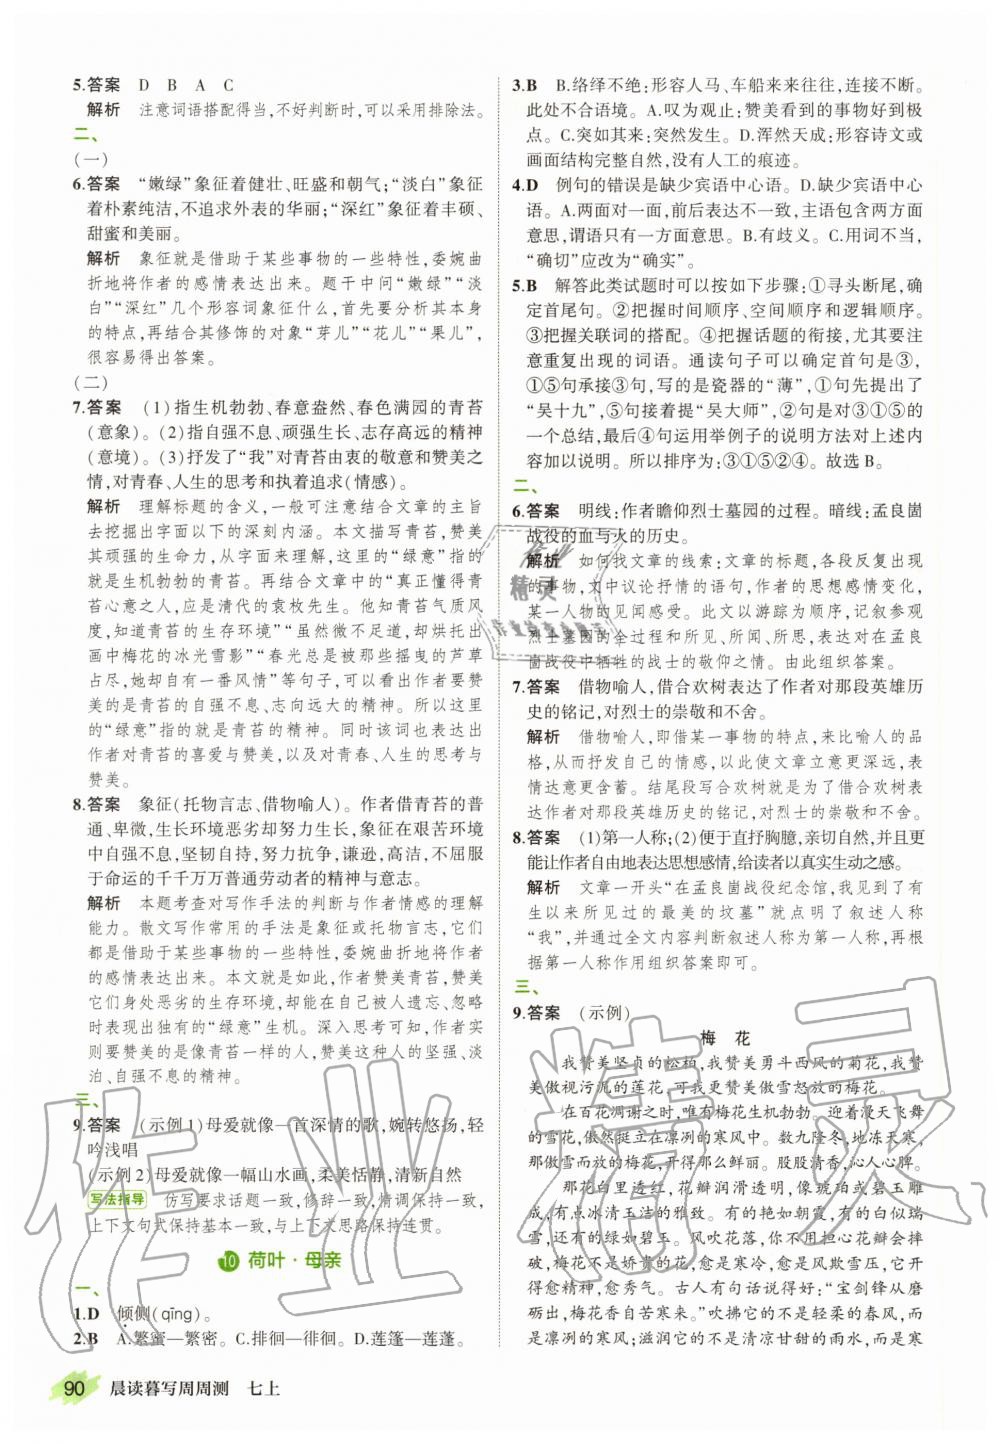 5.答案　D　B　A　C
解析　注意词语搭配得当,不好判断时,可以采用排除法。
二、
(一)
6.答案　“嫩绿”象征着健壮、旺盛和朝气;“淡白”象征
着朴素纯洁,不追求外表的华丽;“深红”象征着丰硕、
甜蜜和美丽。
解析　象征就是借助于某些事物的一些特性,委婉曲
折地将作者的感情表达出来。题干中问“嫩绿”“淡
白”“深红”几个形容词象征什么,首先要分析其本身
的特点,再结合其修饰的对象“芽儿”“花儿”“果儿”,
很容易得出答案。
(二)
7.答案　(1)指生机勃勃、春意盎然、春色满园的青苔
(意象)。(2)指自强不息、顽强生长、志存高远的精神
(意境)。(3)抒发了“我”对青苔由衷的敬意和赞美之
情,对青春、人生的思考和执着追求(情感)。
解析　理解标题的含义,一般可注意结合文章的主旨
去挖掘出字面以下的深刻内涵。本文描写青苔,赞美
其顽强的生命力,从字面来理解,这里的“绿意”指的
就是生机勃勃的青苔。再结合文章中的“真正懂得青
苔心意之人,应是清代的袁枚先生。他知青苔气质风
度,功知青苔的生存环境”“虽然微不足道,却烘托出
画中梅花的冰光雪影”“春光总是被那些摇曳的芦草
占尽,她却自有一番风情”等句子,可以看出作者要赞
美的是青苔的自强不息、志向远大的精神。所以这里
的“绿意”指的就是青苔的精神。同时该词也表达出
作者对青苔的喜爱与赞美,以及对青春、人生的思考与
赞美。
8.答案　象征(托物言志、借物喻人)。作者借青苔的普
通、卑微,生长环境恶劣却努力生长,象征在艰苦环境
中自强不息,坚韧自持,努力抗争,谦逊,高洁,不屈服
于命运的千千万万普通劳动者的精神与意志。
解析　本题考查对写作手法的判断与作者情感的理解
能力。散文写作常用的手法是象征或托物言志,它们
都是借助于某些事物的一些特性,委婉曲折地将作者
的感情表达出来。本文就是如此,作者赞美青苔,赞美
它们身处恶劣的生存环境,却能在被人遗忘、忽略
时表现出独有的“绿意”生机。深入思考可知,作者实
则要赞美的是像青苔一样的人,赞美这种人的坚强、淡
泊、自强不息的精神。
三、
9.答案　(示例1)母爱就像一首深情的歌,婉转悠扬,轻
吟浅唱
(示例2)母爱就像一幅山水画,柔美恬静,清新自然
写法指导　仿写要求话题一致,修辞一致,情调保持一致,
上下文句式保持基本一致,与上下文思路保持连贯。
10 荷叶·母亲
一、
1.D　倾侧(qīng)。
2.B　A.繁蜜—繁密。C.排徊—徘徊。D.莲篷—莲蓬。
3.B　B.络绎不绝:形容人马、车船来来往往,连接不断。
此处不合语境。A.叹为观止:赞美看到的事物好到极
点。C.突如其来:突然发生。D.浑然天成:形容诗文或
画面结构完整自然,没有人工的痕迹。
4.D　例句的错误是缺少宾语中心语。D.缺少宾语中心
语。A.两面对一面,前后表达不一致,主语包含两方面
意思,谓语只有一方面意思。B.有歧义。C.用词不当,
“确切”应改为“确实”。
5.B　解答此类试题时可以按如下步骤:①寻头断尾,确
定首尾句。②把握时间顺序、空间顺序和逻辑顺序。
③把握关联词的搭配。④把握话题的衔接,尤其要注
意重复出现的词语。通读句子可以确定首句是③,
①⑤句承接③句,写的是瓷器的“薄”,①句先提出了
“吴十九”,⑤句接着提“吴大师”,②句是对③①⑤的
一个总结,最后④句运用举例子的说明方法对上述内
容加以说明。所以排序为:③①⑤②④。故选B。
二、
6.答案　明线:作者瞻仰烈士墓园的过程。暗线:孟良崮
战役的血与火的历史。
解析　如何找文章的线索:文章的标题,各段反复出现
的事物,文中议论抒情的语句,作者的思想感情变化,
某一人物的见闻感受。此文以游踪为顺序,记叙参观
烈士墓园的全过程和所见、所闻、所思,表达对在孟良
崮战役中牺牲的战士的敬仰之情。由此组织答案。
7.答案　借物喻人,借合欢树表达了作者对那段英雄历
史的铭记,对烈士的崇敬和不舍。
解析　借物喻人,即借某一事物的特点,来比喻人的品
格,从而抒发自己的情感,以此使文章立意更深远,表
情达意更含蓄。结尾段写合欢树就是为了借合欢树表
达作者对那段英雄历史的铭记,对烈士的崇敬和不舍。
8.答案　(1)第一人称;(2)便于直抒胸臆,亲切自然,并且更
能让作者自由地表达思想感情,给读者以真实生动之感。
解析　文章一开头“在孟良崮战役纪念馆,我见到了有
生以来所见到过的最美的坟墓”就点明了叙述人称
“我”,并通过全文内容判断叙述人称为第一人称,再根
据第一人称作用组织答案即可。
三、
9.答案　(示例)
梅　花
我赞美坚贞的松柏,我赞美勇斗西风的菊花,我赞
美傲视污泥的莲花,可我更赞美傲雪怒放的梅花。
在百花凋谢之时,唯有梅花生机勃勃。迎着漫天飞舞
的雪花,傲然挺立在凛冽的寒风中。数九隆冬,地冻天寒,
那傲雪而放的梅花,开得多么鲜丽。股股清香,沁人心脾。
那花白里透红,花瓣润滑透明,像琥珀或碧玉雕
成,有点冰清玉洁的雅致。有的如朝霞,有的白似瑞
雪,还有的绿如碧玉。风吹花落,你不要为它惋惜,因为
梅花不是娇贵的花;愈是寒冷,愈是风欺雪压,它开得愈
精神,愈秀气。古人有句话说得好:“宝剑锋从磨
砺出,梅花香自苦寒来。”吹拂它的不是轻柔的春风,而
是凛冽的寒风;滋润它的不是清凉甘甜的雨水,而是寒
90 晨读暮写周周测　七上
作业精灵